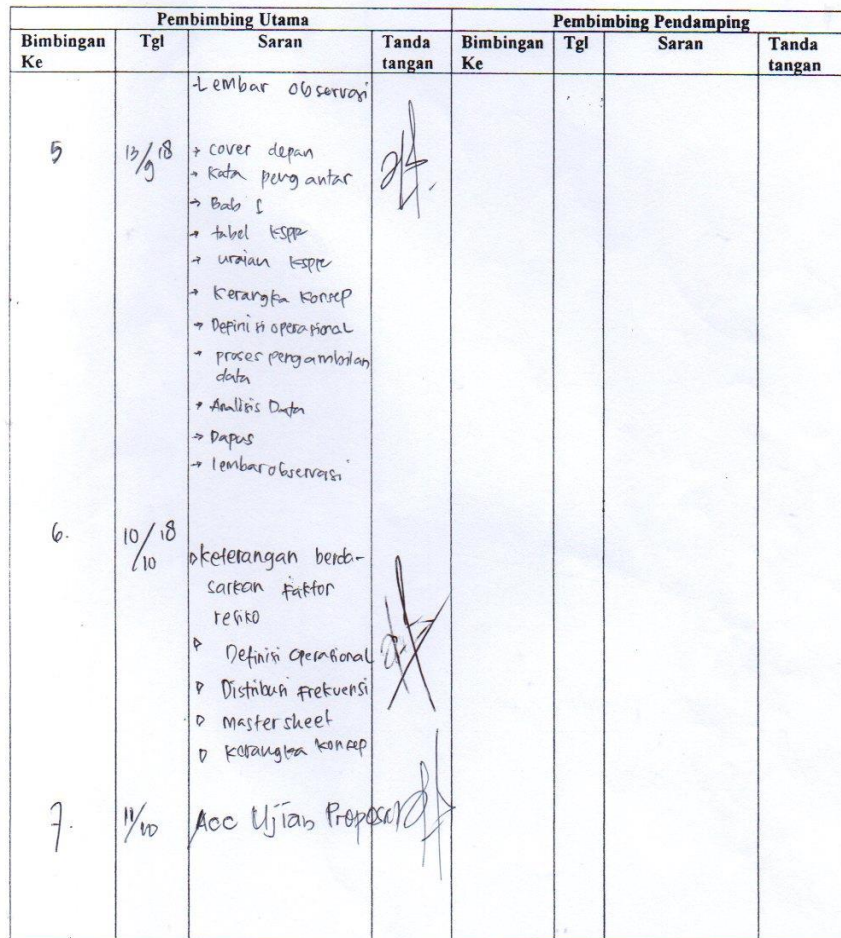 Pembimbing Utama
Pembimbing Pendamping
Bimbingan Ke
Tgl
Saran
Tanda tangan
Bimbingan Ke
Tgl
Saran
Tanda tangan
-Lembar observasi
5
13/9 18
→ cover depan
→ Kata pengantar
→ Bab I
→ tabel KSPR
→ uraian KSPR
→ Kerangka Konsep
→ Definisi operasional
→ proses pengambilan
data
→ Analisis Data
→ Dapus
→ lembar observasi
6.
10/10 18
▷ keterangan berda-
sarkan faktor
resiko
▷ Definisi Operasional
▷ Distribusi Frekuensi
▷ master sheet
▷ kerangka konsep
7.
11/10
Acc Ujian Proposal